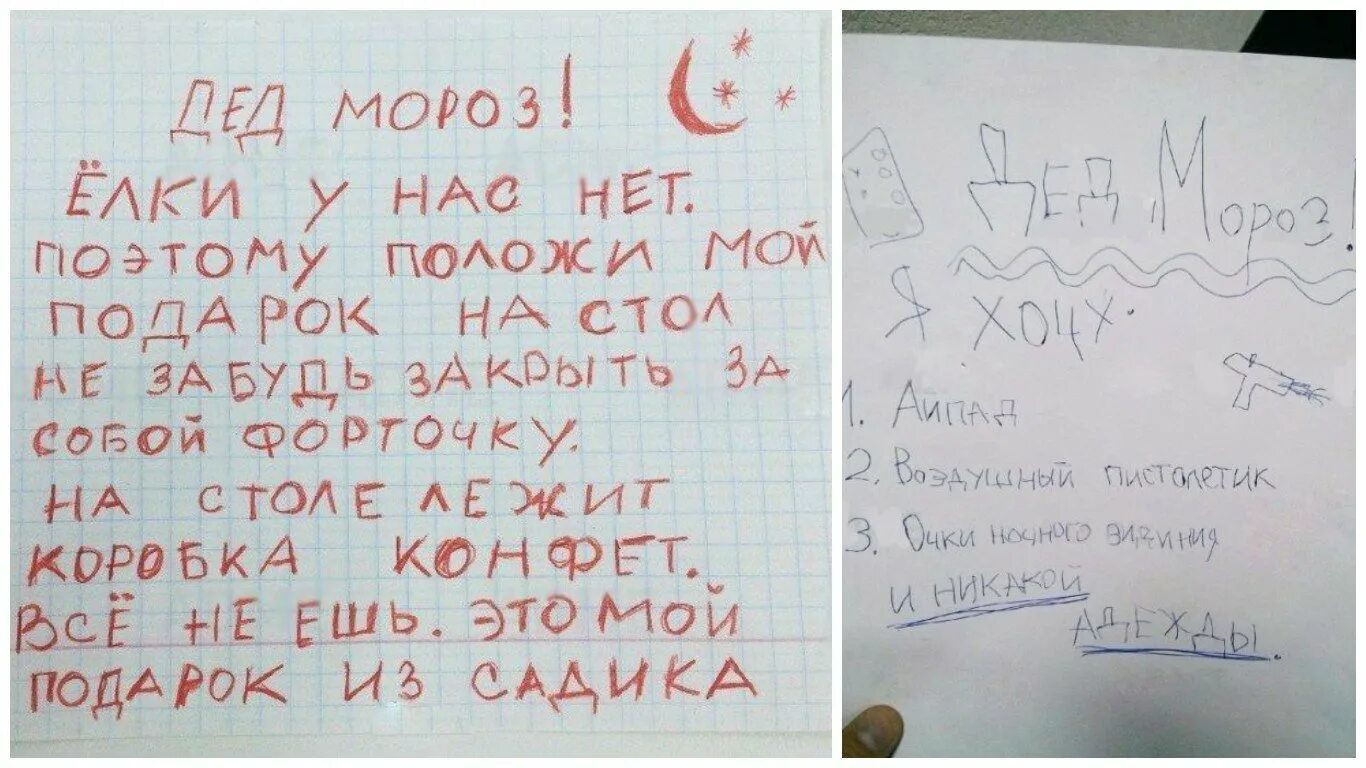 ДЕД МОРОЗ!
ЁЛКИ У НАС НЕТ.
ПОЭТОМУ ПОЛОЖИ МОЙ
ПОДАРОК НА СТОЛ
НЕ ЗАБУДЬ ЗАКРЫТЬ ЗА
СОБОЙ ФОРТОЧКУ.
НА СТОЛЕ ЛЕЖИТ
КОРОБКА КОНФЕТ.
ВСЁ НЕ ЕШЬ. ЭТО МОЙ
ПОДАРОК ИЗ САДИКА
ДЕД МОРОЗ!
Я ХОЦУ.
1. АЙПАД
2. Воздушный пистолетик
3. Очки ночного видиния
и никакой
АДЕЖДЫ.